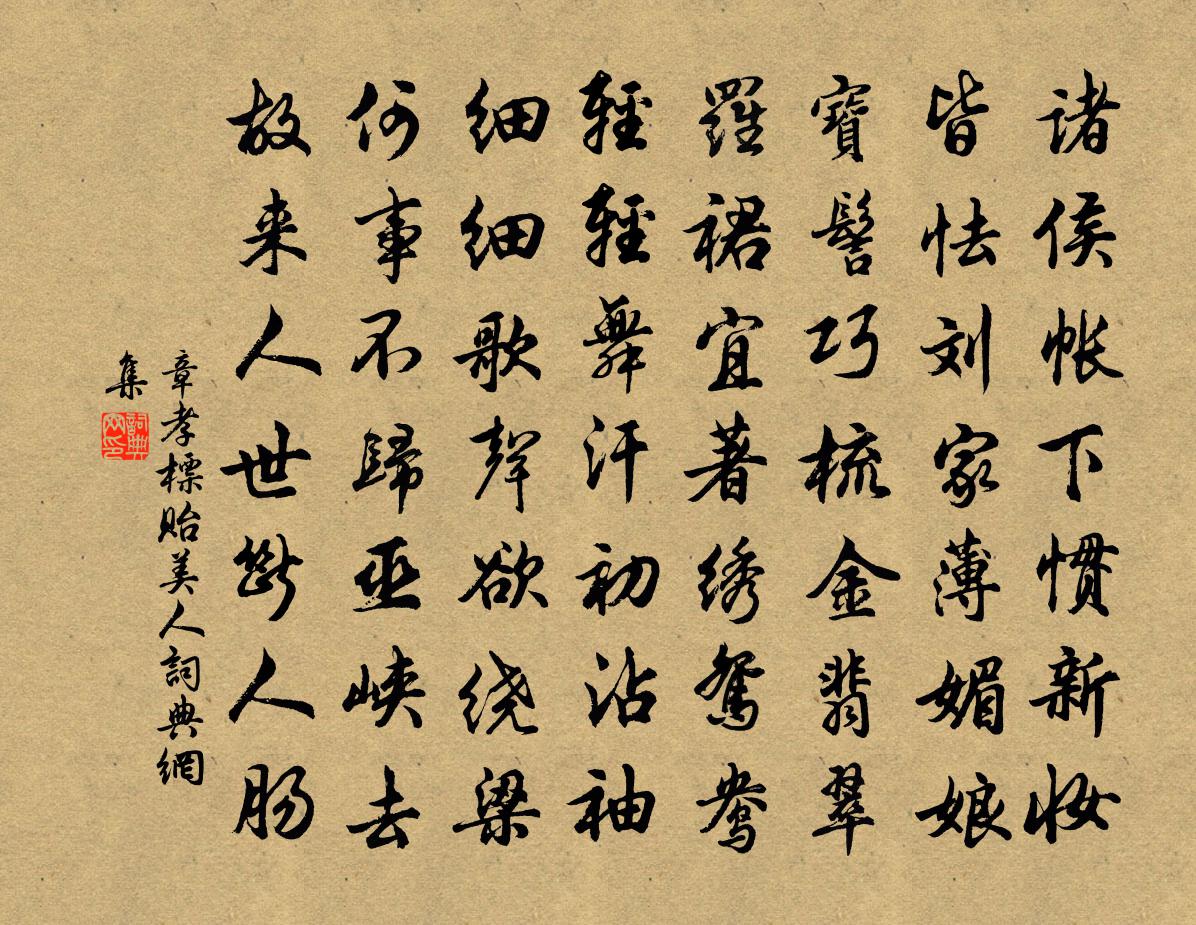 诸侯帐下惯新妆
皆怯刘家薄媚娘
寶髻巧梳金翡翠
羅裙宜著绣鸳鸯
輕輕舞汗初沾袖
细细歌聲欲绕梁
何事不歸巫峡去
故来人世断人肠
章孝標貽美人詞典網
集
詞典网印